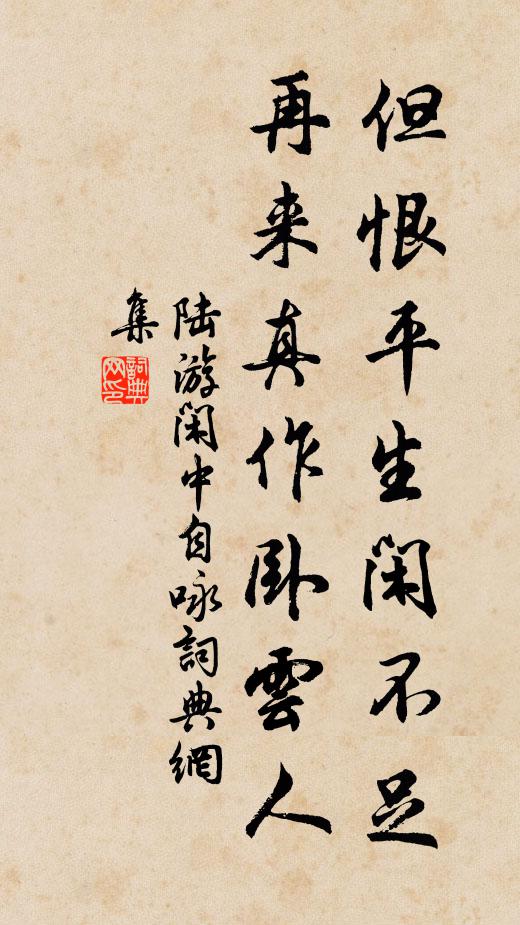 但恨平生闲不足
再来真作卧雲人
陆游闲中自咏詞典網
集
詞典网印